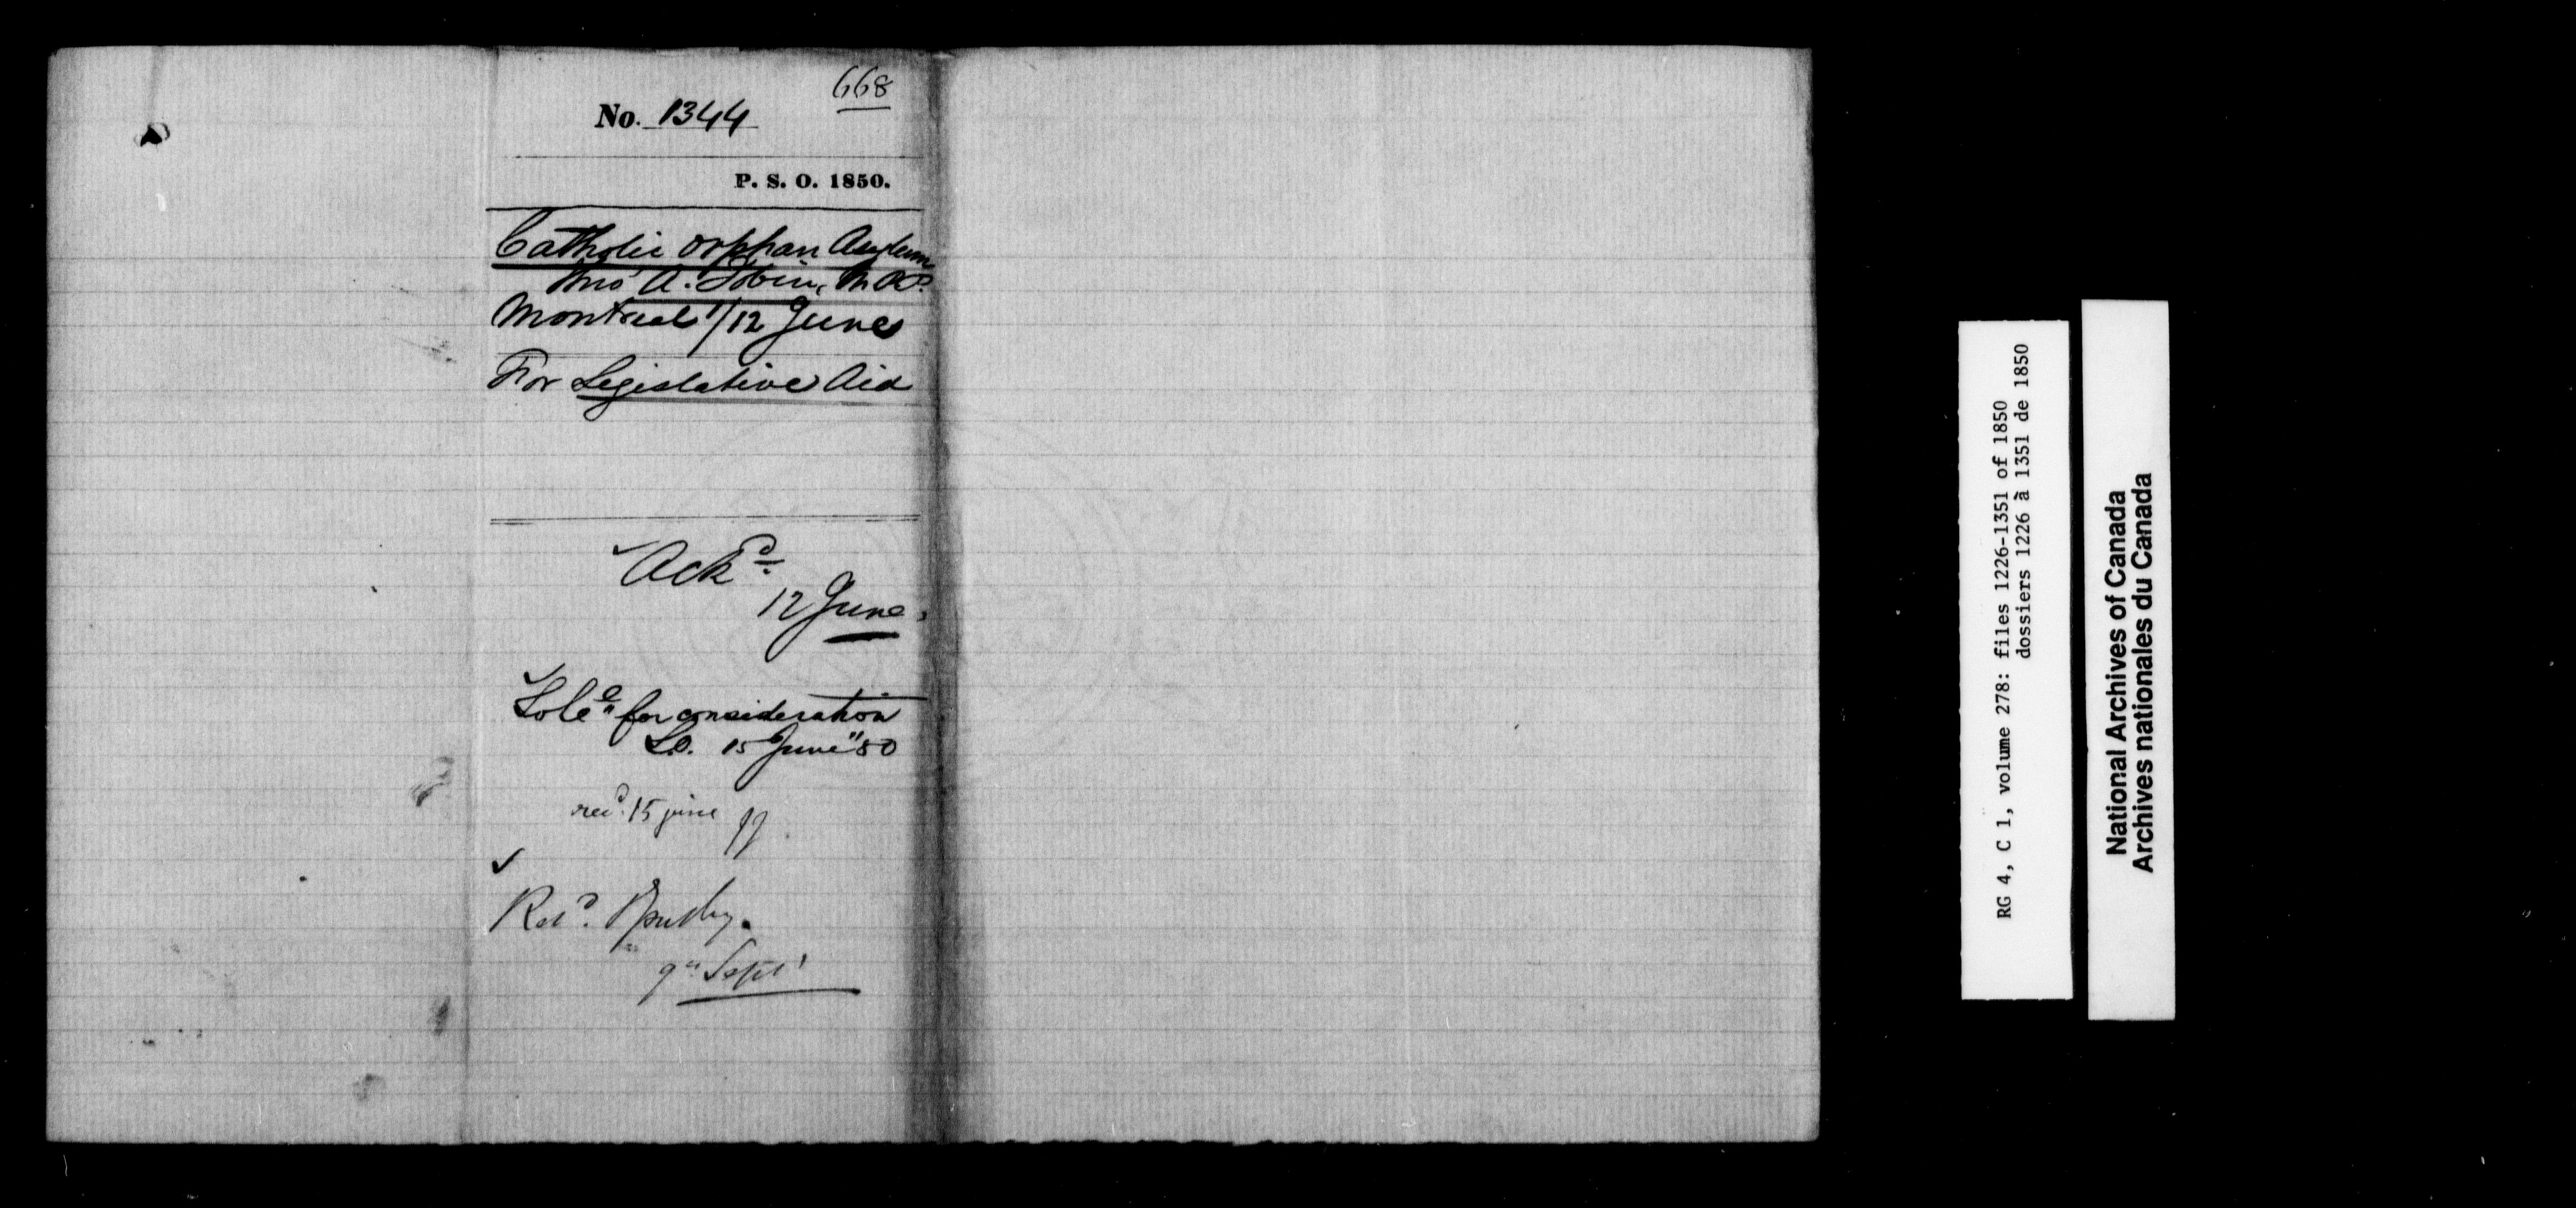 668
No. 1344
P. S. O. 1850.
Catholic Orphan Asylum
Montreal 11/12 June
For Legislative Aid
Ackd.
12 June.
for consideration
15 June "50
recd. 15 june
9th Septr
RG 4, C 1, volume 278: files 1226-1351 of 1850
dossiers 1226 à 1351 de 1850
National Archives of Canada
Archives nationales du Canada